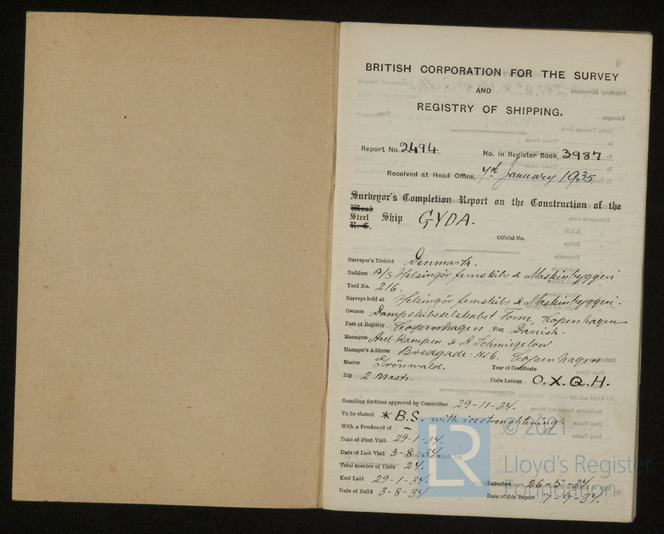 BRITISH CORPORATION FOR THE SURVEY
AND
REGISTRY OF SHIPPING.
Report No. 2494 No. in Register Book, 3987
Received at Head Office, 7th January 1935
Surveyor's Completion Report on the Construction of the
Wood
Steel Ship GYDA.
Official No.
Surveyor's District Denmark.
Builders A/S Helsingör Jernskibs & Maskinbyggeri
Yard No. 216.
Surveys held at Helsingör Jernskibs & Maskinbyggeri.
Owners Dampskibsselskabet Torm, Copenhagen
Port of Registry Copenhagen Flag Danish.
Managers Kampen &
Manager's Address Bredgade No 6. Copenhagen
Master Grönwald. Year of Certificate
Rig 2 Masts. Code Letters O.X.Q.H.
Scantling Sections approved by Committee 29-11-34.
To be classed * B.S. with icestrengthening.
With a Freeboard of –
Date of First Visit 29-1-34.
Date of Last Visit 3-8-34.
Total number of Visits 24.
Keel Laid 29-1-34. Launched 26-5-34
Date of Build 3-8-34 Date of this Report 7-9-34.
LR
© 2021
Lloyd's Register
Foundation